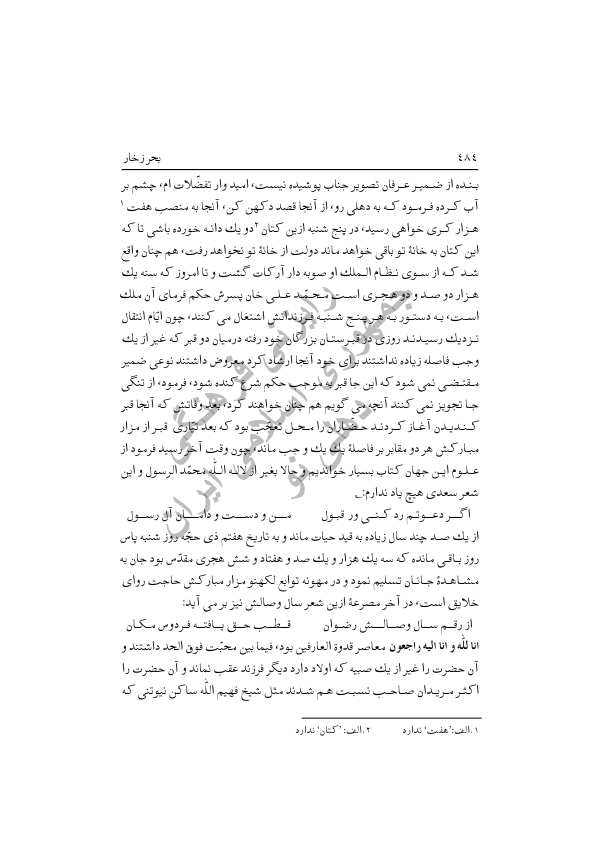 ۴۸۴ بحر زخار
بنده از ضمیر عرفان تصویر جناب پوشیده نیست، امید وار تفضّلات ام، چشم بر
آب کرده فرمود که به دهلی رو، از آنجا قصد دکهن کن، آنجا به منصب هفت ۱
هزار کری خواهی رسید، در پنج شنبه ازین کتان ۲ دو یك دانه خورده باشی تا که
این کتان به خانهٔ تو باقی خواهد ماند دولت از خانهٔ تو نخواهد رفت، هم چنان واقع
شد که از سوی نظام الملك او صوبه دار آرکات گشت و تا امروز که سنه یك
هزار دو صد و دو هجری است محمّد علی خان پسرش حکم فرمای آن ملك
است، به دستور به هر پنج شنبه فرزندانش اشتغال می کنند، چون ایّام انتقال
نزدیك رسیدند روزی در قبرستان بزرگان خود رفته درمیان دو قبر که غیر از یك
وجب فاصله زیاده نداشتند برای خود آنجا ارشاد کرد معروض داشتند نوعی ضمیر
مقتضی نمی شود که این جا قبر به موجب حکم شرع کنده شود، فرمود، از تنگی
جا تجویز نمی کنند آنچه می گویم هم چنان خواهند کرد، بعد وفاتش که آنجا قبر
کندیدن آغاز کردند حضّاران را محل تعجّب بود که بعد تیّاری قبر از مزار
مبارکش هر دو مقابر بر فاصلهٔ یك یك و جب ماند، چون وقت آخر رسید فرمود از
علوم این جهان کتاب بسیار خواندیم و حالا بغیر از لا اله الّا الله محمّد الرسول و این
شعر سعدی هیچ یاد ندارم:
اگر دعوتم رد کنی ور قبول من و دست و دامان آل رسول
از یك صد چند سال زیاده به قید حیات ماند و به تاریخ هفتم ذی حجّه روز شنبه پاس
روز باقی مانده که سه یك هزار و یك صد و هفتاد و شش هجری مقدّس بود جان به
مشاهدهٔ جانان تسلیم نمود و در مهونه توابع لکهنو مزار مبارکش حاجت روای
خلایق است، در آخر مصرعهٔ ازین شعر سال وصالش نیز بر می آید:
از رقم سال وصالش رضوان قطب حق یافته فردوس مکان
انا لله و انا الیه راجعون معاصر قدوة العارفین بود، فیما بین محبّت فوق الحد داشتند و
آن حضرت را غیر از یك صبیه که اولاد دارد دیگر فرزند عقب نماند و آن حضرت را
اکثر مریدان صاحب نسبت هم شدند مثل شیخ فهیم الله ساکن نیوتنی که
۱.الف:'هفت' ندارد ۲.الف: 'کتان' ندارد
رایزنی فرهنگی
جمهوری اسلامی ایران
دهلی نو